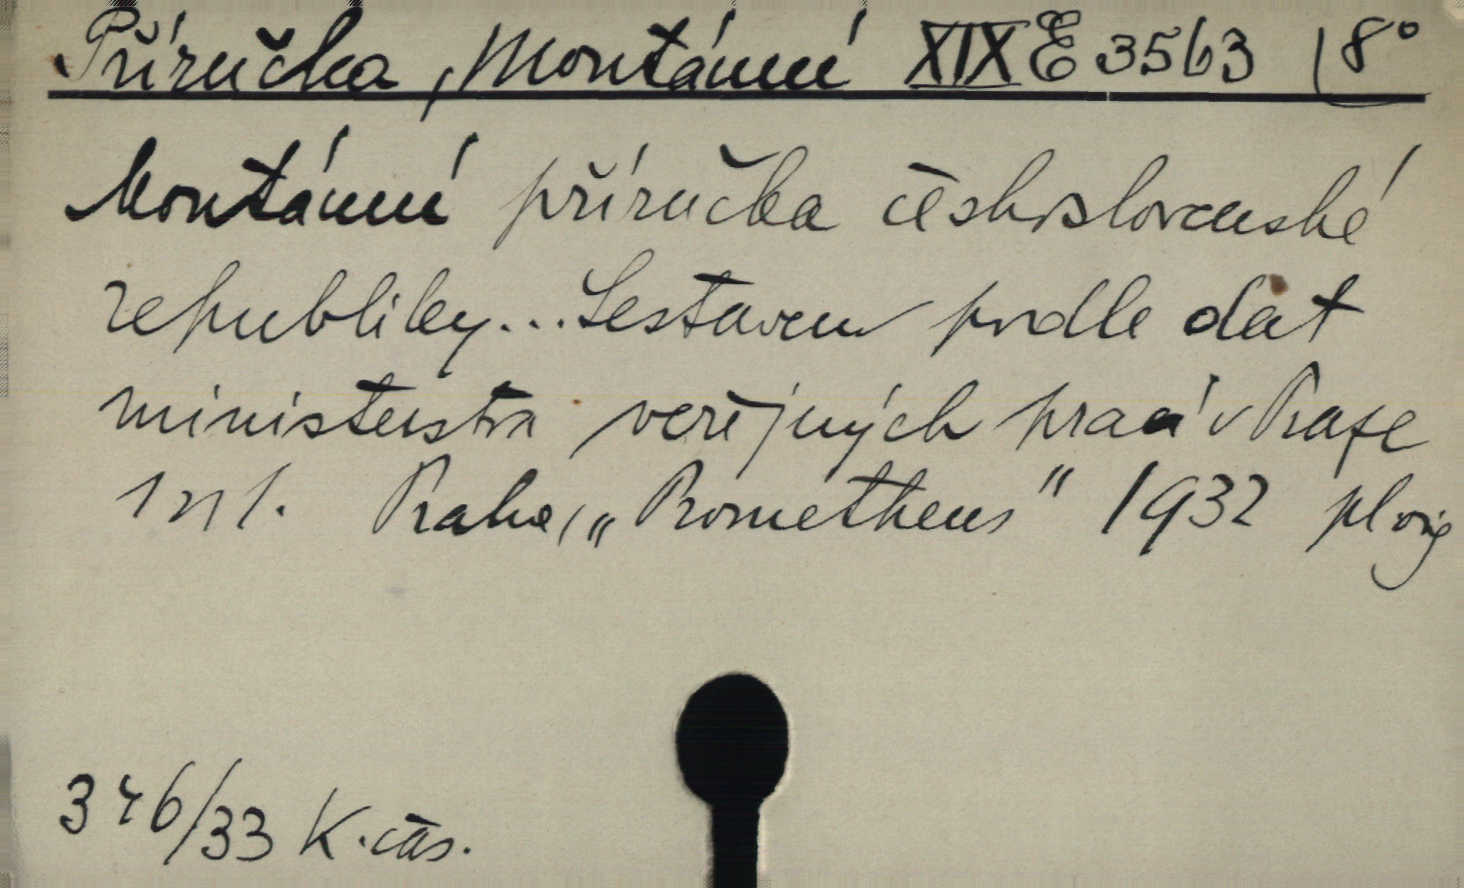 Příručka, Montánní XIX E 3563 | 8°
Montánní příručka československé
republiky... Sestaven podle dat
ministerstva veřejných prací v Praze
Praha, „Prometheus" 1932
346/33 K. čas.